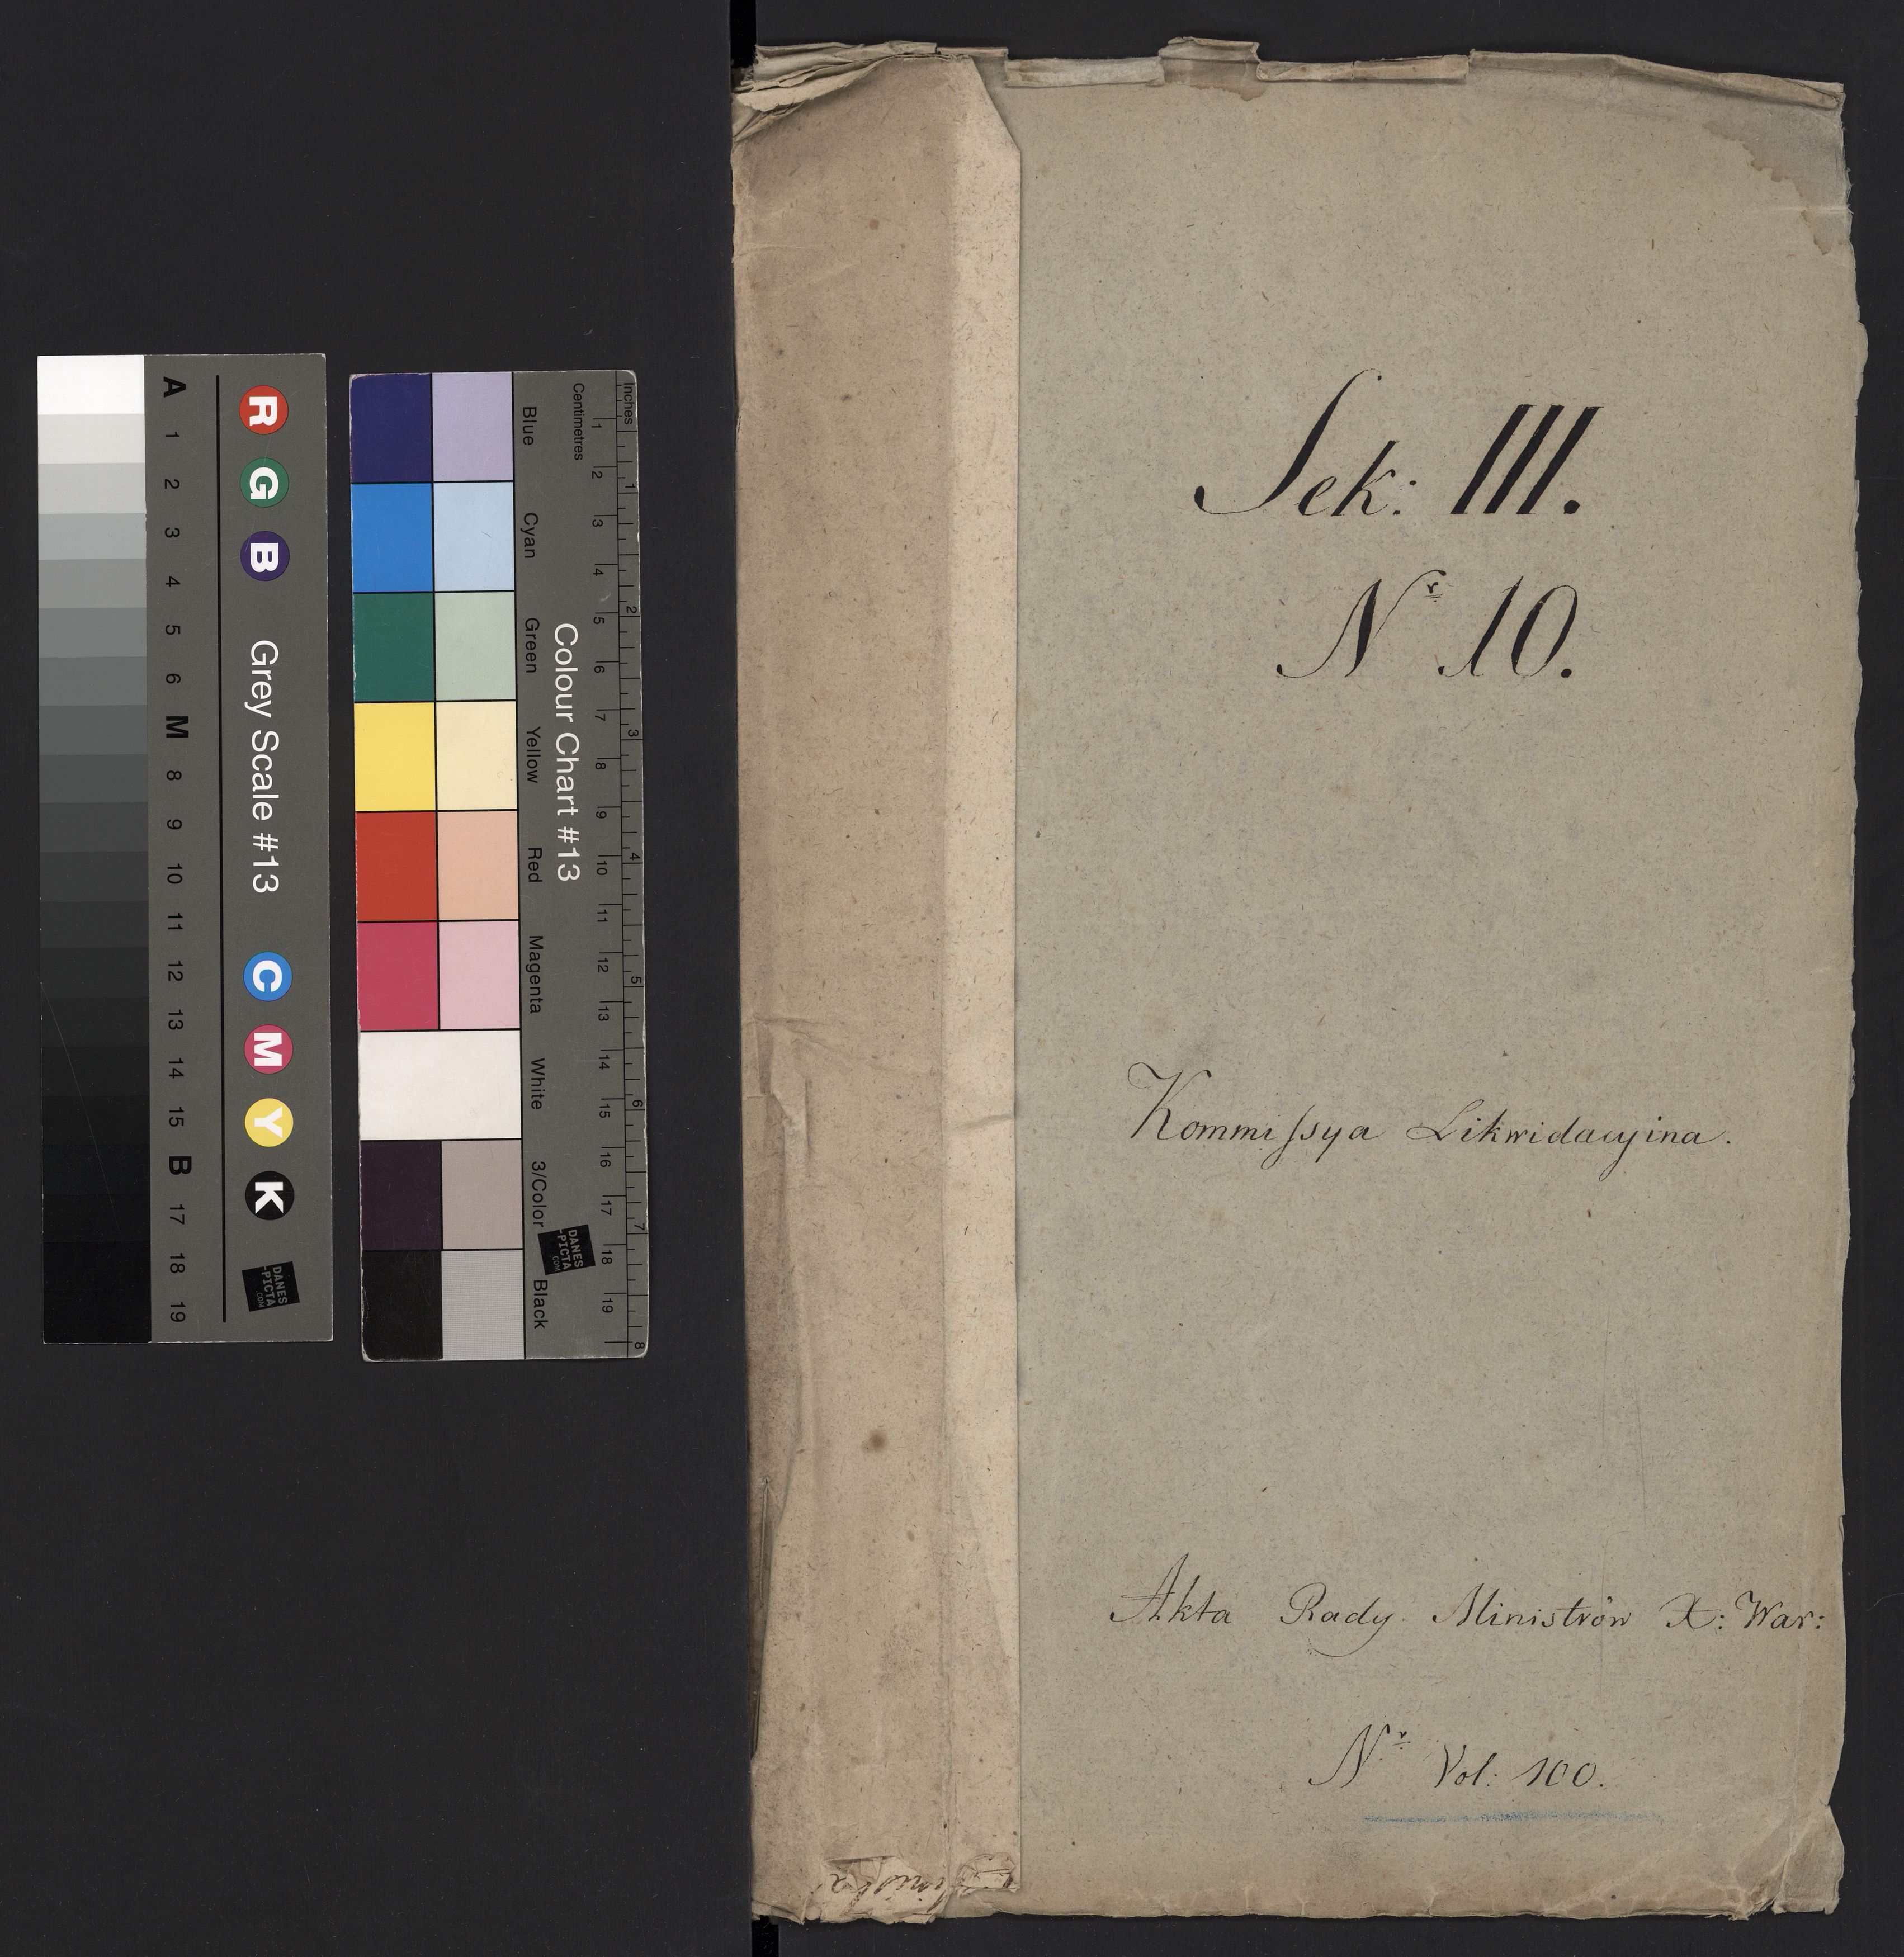 A 1 2 3 4 5 6 M 8 9 10 11 12 13 14 15 B 17 18 19
R G B Grey Scale #13 C M Y K
DANES
-PICTA
.COM
Blue Cyan Green Yellow Red Magenta White 3/Color Black
Colour Chart #13
DANES
-PICTA
.COM
Centimetres 1 2 3 4 5 6 7 8 9 10 11 12 13 14 15 16 17 18 19
Inches 1 2 3 4 5 6 7 8
Sek: III.
Nr 10.
Kommissya Likwidacyina.
Akta Rady Ministrów X: War:
Nr Vol: 100.